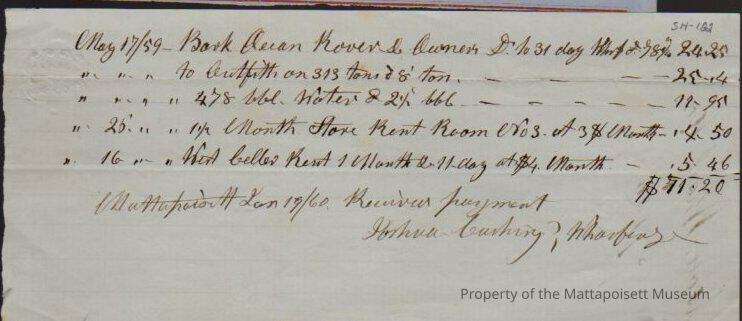 SH-182
May 17/59 - Bark Ocean Rover & Owners Dr. to 31 day Whf @ 78 24.25
" " " " to Outfitts on 313 tons @ 8 ton. - - - 25.14
" " " " 478 bbl. Water @ 2½ bbl - - - - 11-95
" 25 " " 1½ Month Store Rent Room No 3. at 3$ Month - 4.50
" 16 " " West Celler Rent 1 Month & 11 day at $4. Month. - 5.46
$71.20
Mattapoisett Jan 19/60. Receives payment
Joshua Cushing, Wharfinger
Property of the Mattapoisett Museum